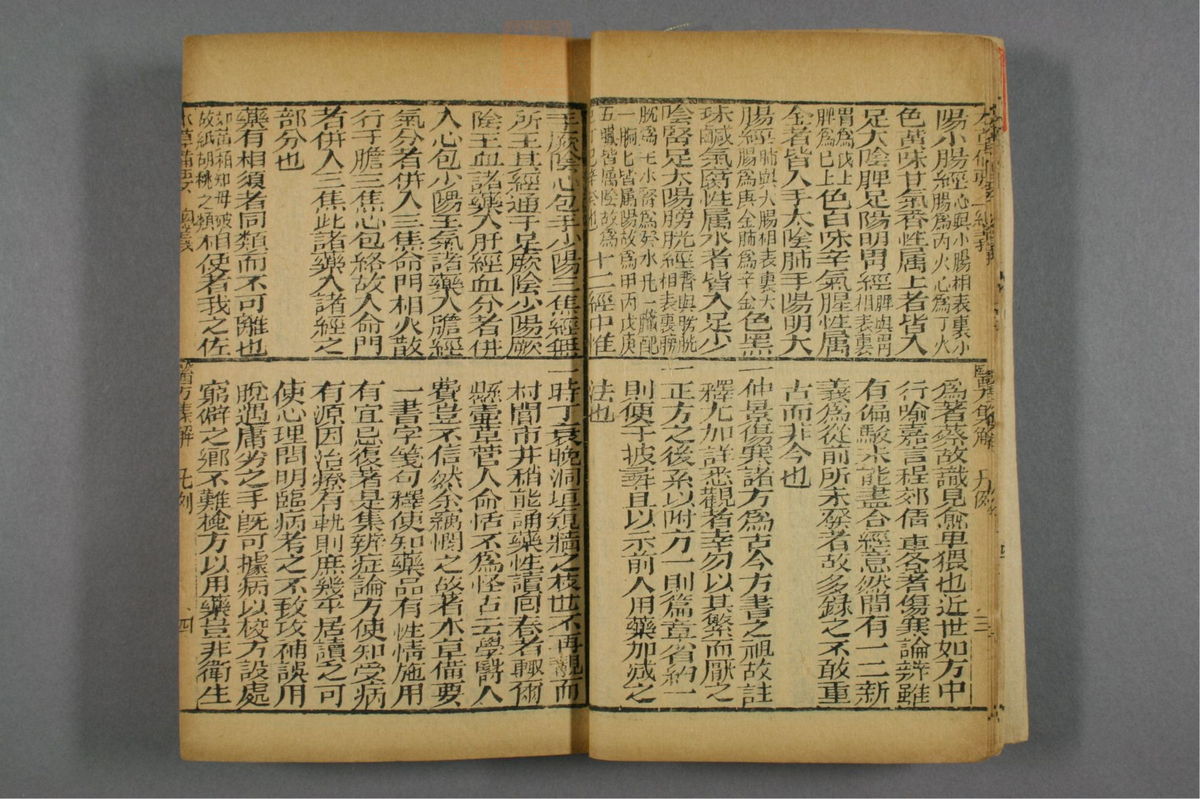 陽小腸經心與小腸相表裏小腸爲丙火心爲丁火
色黃味甘氣香性属土者皆入
足太陰脾足陽明胃經脾與胃相表裏
胃爲戊土脾爲己土色白味辛氣腥性属
金者皆入手太陰肺手陽明大
腸經肺與大腸相表裏大腸爲庚金肺爲辛金色黑
味鹹氣腐性属水者皆入足少
陰腎足太陽膀胱經腎與膀胱相表裏膀
胱爲壬水腎爲癸水凡一臟配
一腑匕皆属陽故爲甲丙戊庚
五臟皆属陰故爲丁己辛癸也十二經中惟
爲著蔡故識見愈卑猥也近世如方中
行喻嘉言程郊倩輩各著傷寒論辨雖
有偏駮未能盡合經意然間有一二新
義爲從前所未發者故多錄之不敢重
古而非今也
一仲景傷寒諸方爲古今方書之祖故註
釋尤加詳悉觀者幸勿以其繁而厭之
一正方之後系以附方一則篇章省約一
則便于披尋且以示前人用藥加減之
法也
手厥陰心包手少陽三焦經無
所主其經通于足厥陰少陽厥
陰主血諸藥入肝經血分者併
入心包少陽主氣諸藥入膽經
氣分者併入三焦命門相火散
行于膽三焦心包絡故入命門
者併入三焦此諸藥入諸經之
部分也
藥有相須者同類而不可離也
如黃栢知母破故紙胡桃之類相使者我之佐
本草備要
醫方集解 凡例 四
一時丁衰晚洞垣窺牆之技世不再覯而
村閭市井稍能誦藥性讀回春者輒爾
懸壺草菅人命恬不爲怪古云學醫人
費豈不信然余竊憫之故著本草備要
一書字箋句釋使知藥品有性情施用
有宜忌復著是集辨症論方使知受病
有源因治療有軌則庶幾平居讀之可
使心理開明臨病考之不致攻補誤用
脫遇庸劣之手旣可據病以校方設處
窮僻之鄉不難檢方以用藥豈非衛生